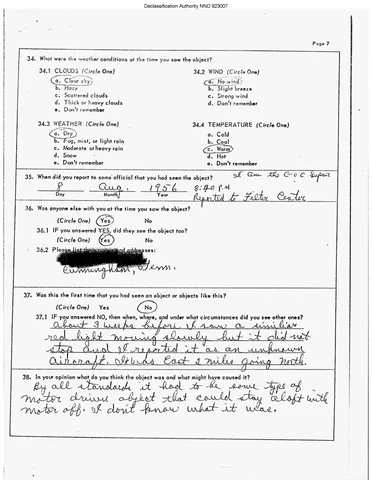 Declassification Authority NND 923007
Page 7
34. What were the weather conditions at the time you saw the object?
34.1 CLOUDS (Circle One) 34.2 WIND (Circle One)
a. Clear sky a. No wind
b. Hazy b. Slight breeze
c. Scattered clouds c. Strong wind
d. Thick or heavy clouds d. Don't remember
e. Don't remember
34.3 WEATHER (Circle One) 34.4 TEMPERATURE (Circle One)
a. Dry a. Cold
b. Fog, mist, or light rain b. Cool
c. Moderate or heavy rain c. Warm
d. Snow d. Hot
e. Don't remember e. Don't remember
I am the G-O-C Super
35. When did you report to some official that you had seen the object?
8 Aug. 1956 8:40 P.M
Day Month Year Reported to Filter Center
36. Was anyone else with you at the time you saw the object?
(Circle One) Yes No
36.1 IF you answered YES, did they see the object too?
(Circle One) Yes No
36.2 Please list their addresses:
Cunningham, Tenn.
37. Was this the first time that you had seen an object or objects like this?
(Circle One) Yes No
37.1 IF you answered NO, then when, where, and under what circumstances did you see other ones?
About 3 weeks before I saw a similiar
red light moving slowly but it did not
stop and I reported it as an unknown
aircraft. It was East 2 miles going North.
38. In your opinion what do you think the object was and what might have caused it?
By all standards it had to be some type of
motor driven object that could stay aloft with
motor off. I don't know what it was.